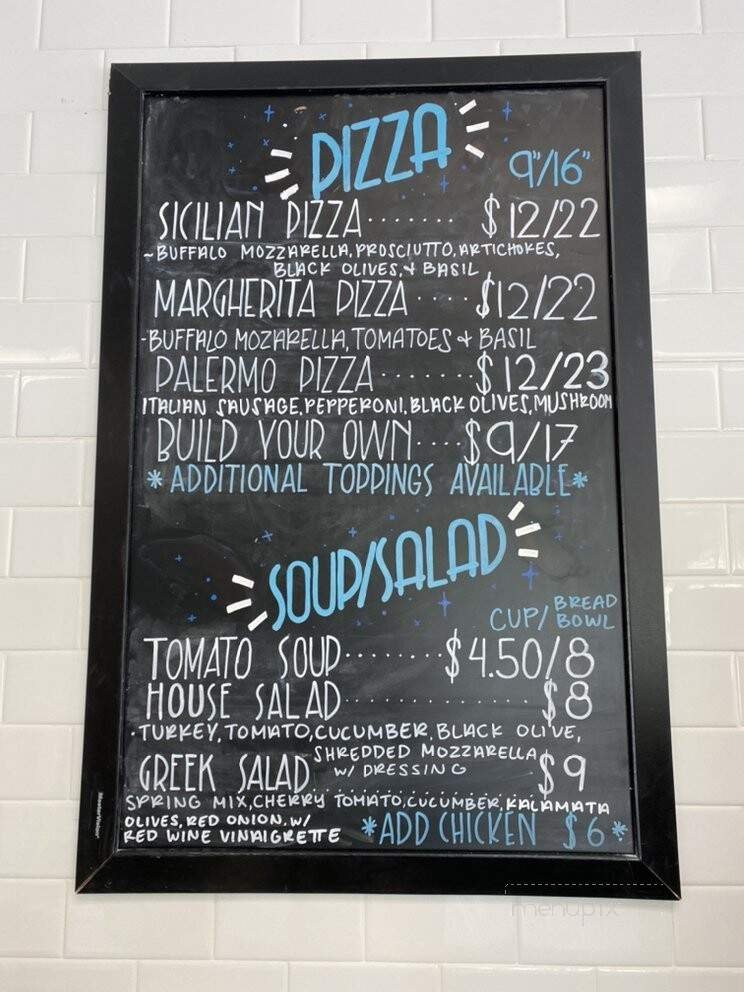 PIZZA
9"/16"
SICILIAN PIZZA ....... $12/22
~BUFFALO MOZZARELLA, PROSCIUTTO, ARTICHOKES,
BLACK OLIVES, + BASIL
MARGHERITA PIZZA .... $12/22
-BUFFALO MOZARELLA, TOMATOES + BASIL
PALERMO PIZZA ....... $12/23
ITALIAN SAUSAGE, PEPPERONI, BLACK OLIVES, MUSHROOM
BUILD YOUR OWN .... $9/17
*ADDITIONAL TOPPINGS AVAILABLE*
SOUP/SALAD
CUP/ BREAD
BOWL
TOMATO SOUP ........ $4.50/8
HOUSE SALAD ................ $8
·TURKEY, TOMATO, CUCUMBER, BLACK OLIVE,
SHREDDED MOZZARELLA
W/ DRESSING
GREEK SALAD ................ $9
SPRING MIX, CHERRY TOMATO, CUCUMBER, KALAMATA
OLIVES, RED ONION. W/
RED WINE VINAIGRETTE
*ADD CHICKEN $6*
MasterVision
menupix